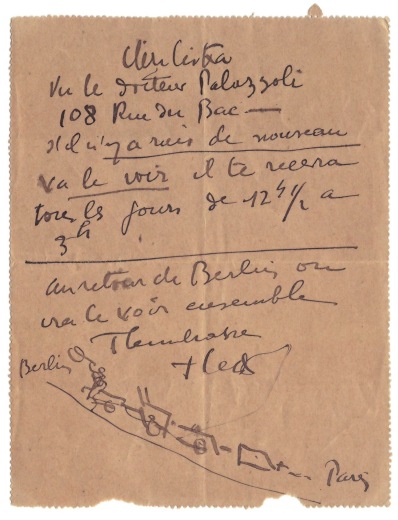 Vu le docteur Palazzoli
108 Rue du Bac —
s'il n'y a rien de nouveau
va le voir il te recevra
tous les jours de 12h 1/2 a
3h
au retour de Berlin on
ira le voir ensemble
Berlin
Paris